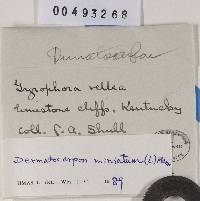 00493268
Dermatocarpon
Gyrophora vellea
limestone cliffs, Kentucky
coll. G. A. Shull
Dermatocarpon miniatum (L.) Mann
19 89